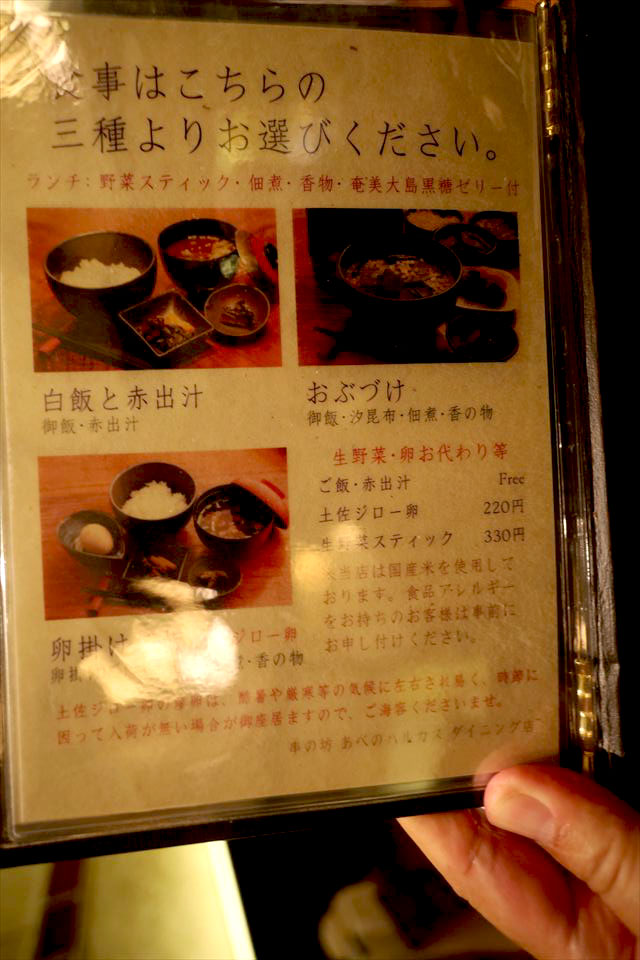 食事はこちらの
三種よりお選びください。
ランチ：野菜スティック・佃煮・香物・奄美大島黒糖ゼリー付
白飯と赤出汁
御飯・赤出汁
おぶづけ
御飯・汐昆布・佃煮・香の物
生野菜・卵お代わり等
ご飯・赤出汁 Free
土佐ジロー卵 220円
生野菜スティック 330円
当店は国産米を使用して
おります。食品アレルギー
をお持ちのお客様は事前に
お申し付けください。
卵掛け ジロー卵
卵掛 ・香の物
土佐ジロー卵の産卵は、酷暑や厳寒等の気候に左右され易く、時節に
因って入荷が無い場合が御座居ますので、ご海容くださいませ。
串の坊 あべのハルカス ダイニング店